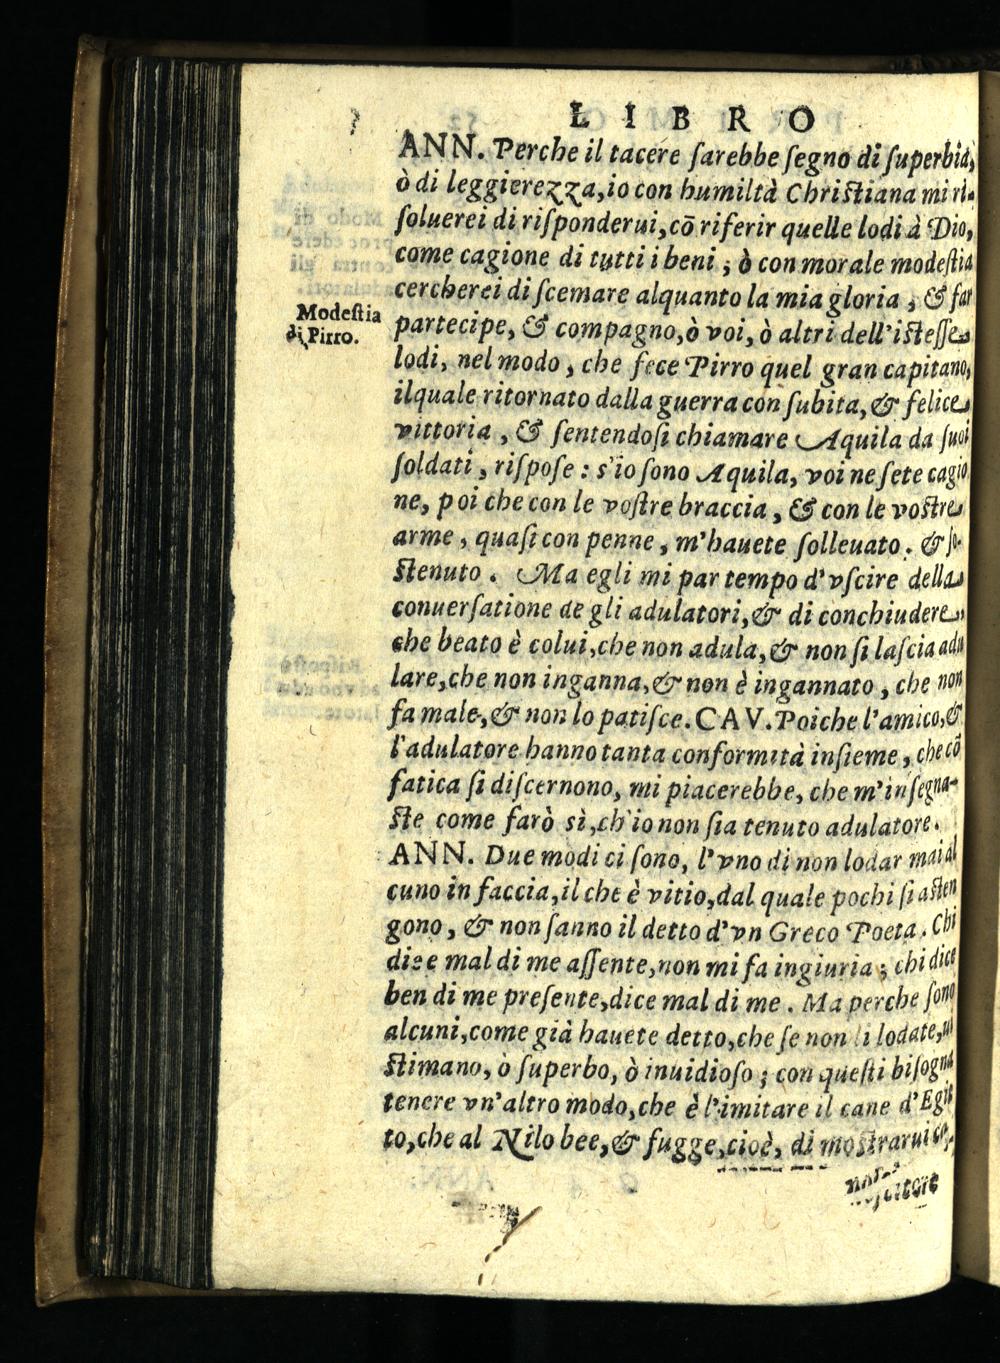 LIBRO
ANN. Perche il tacere ſarebbe ſegno di ſuperbia,
ò di leggierezza, io con humiltà Chriſtiana mi ri-
ſoluerei di riſponderui, cō riferir quelle lodi à Dio,
come cagione di tutti i beni; ò con morale modeſtia
cercherei di ſcemare alquanto la mia gloria, & far
Modeſtia
di Pirro.
partecipe, & compagno, ò voi, ò altri dell'iſteſſe
lodi, nel modo, che fece Pirro quel gran capitano,
ilquale ritornato dalla guerra con ſubita, & felice
vittoria, & ſentendoſi chiamare Aquila da ſuoi
ſoldati, riſpoſe: s'io ſono Aquila, voi ne ſete cagio
ne, poi che con le voſtre braccia, & con le voſtre
arme, quaſi con penne, m'hauete ſolleuato. & ſo-
ſtenuto. Ma egli mi par tempo d'vſcire della
conuerſatione de gli adulatori, & di conchiudere,
che beato è colui, che non adula, & non ſi laſcia adu
lare, che non inganna, & non è ingannato, che non
fa male, & non lo patiſce. CAV. Poiche l'amico, &
l'adulatore hanno tanta conformità inſieme, che cō
fatica ſi diſcernono, mi piacerebbe, che m'inſegna-
ſte come farò sì, ch'io non ſia tenuto adulatore.
ANN. Due modi ci ſono, l'vno di non lodar mai al
cuno in faccia, il che è vitio, dal quale pochi ſi aſten
gono, & non ſanno il detto d'vn Greco Poeta. Chi
dice mal di me aſſente, non mi fa ingiuria; chi dice
ben di me preſente, dice mal di me. Ma perche ſono
alcuni, come già hauete detto, che ſe non li lodate, ui
ſtimano, ò ſuperbo, ò inuidioſo; con queſti biſogna
tenere vn'altro modo, che è l'imitare il cane d'Egit
to, che al Nilo bee, & fugge, cioè, di moſtrarui co-
noſcitore